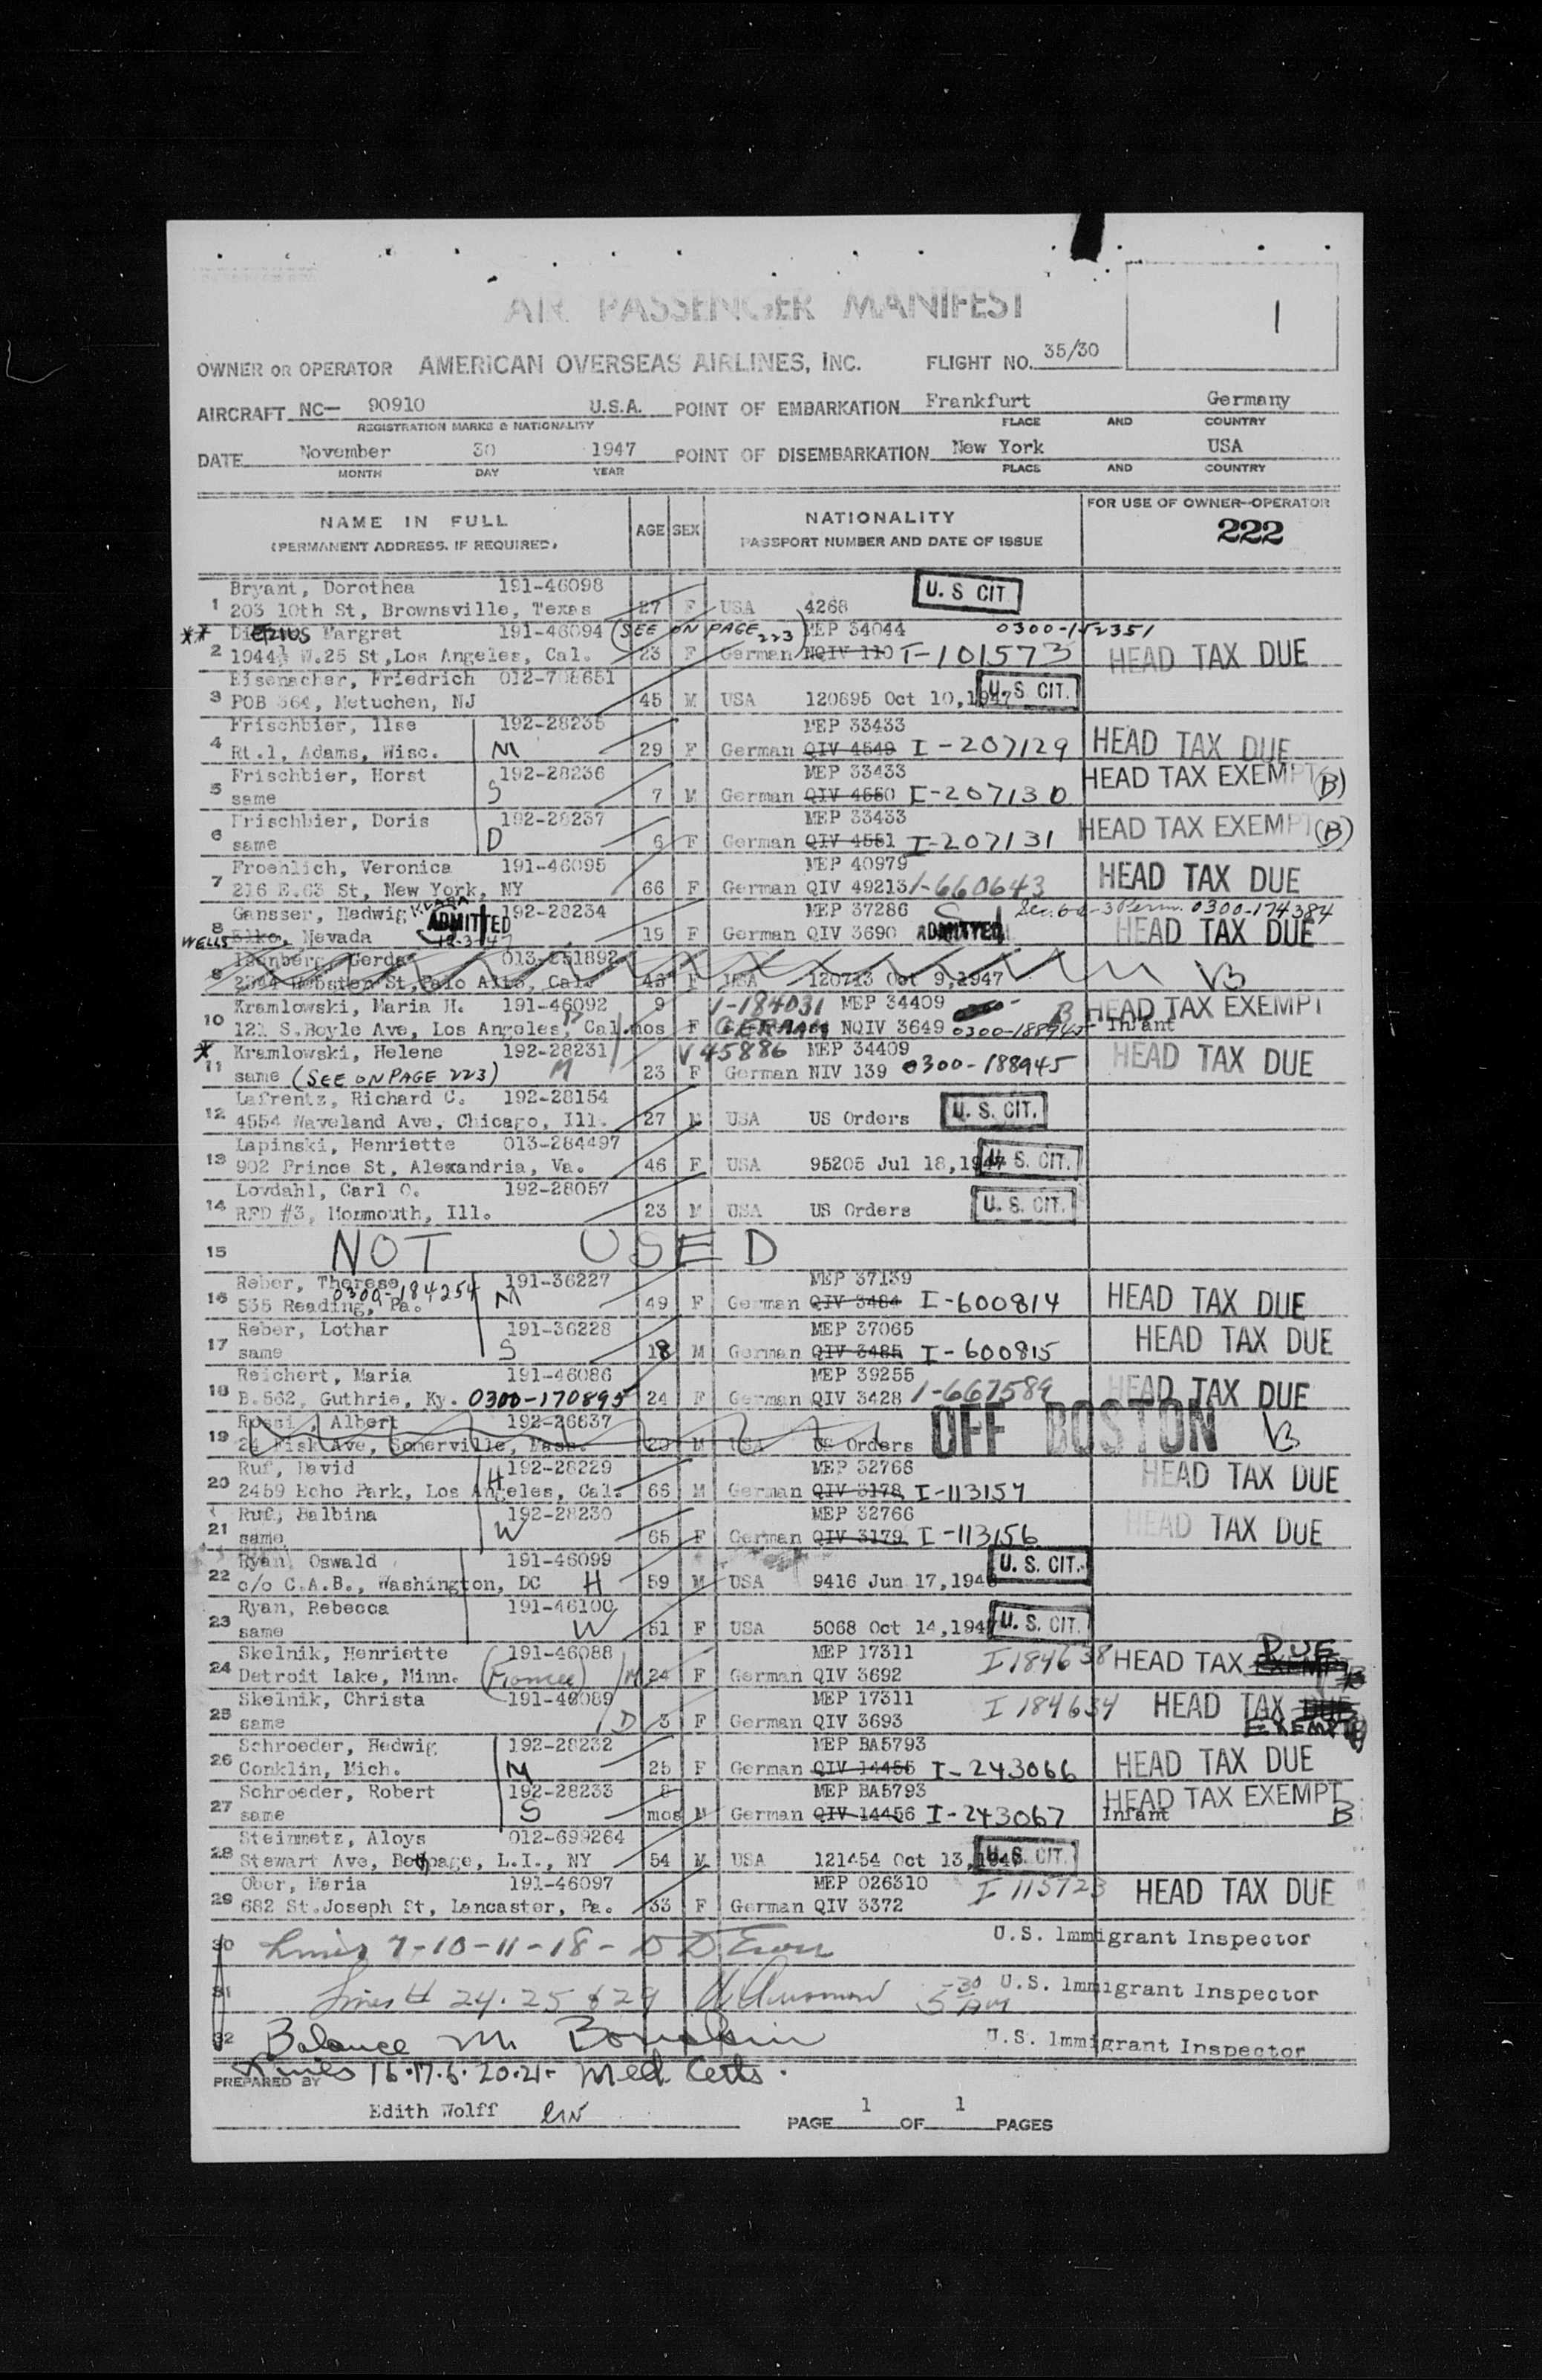 AIR PASSENGER MANIFEST
1
OWNER OR OPERATOR AMERICAN OVERSEAS AIRLINES, INC. FLIGHT NO. 35/30
AIRCRAFT NC— 90910 U.S.A. POINT OF EMBARKATION Frankfurt Germany
REGISTRATION MARKS & NATIONALITY PLACE AND COUNTRY
DATE November 30 1947 POINT OF DISEMBARKATION New York USA
MONTH DAY YEAR PLACE AND COUNTRY
NAME IN FULL AGE SEX NATIONALITY FOR USE OF OWNER-OPERATOR
(PERMANENT ADDRESS. IF REQUIRED) PASSPORT NUMBER AND DATE OF ISSUE 222
Bryant, Dorothea 191-46098 U.S CIT
1 203 10th St, Brownsville, Texas 27 F USA 4268
** Margret 191-46094 (SEE ON PAGE 223) MEP 34044 0300-152351
2 1944½ W.25 St, Los Angeles, Cal. 23 F German NQIV 110 I-101573 HEAD TAX DUE
Eisenacher, Friedrich 012-708651 U.S CIT.
3 POB 364, Metuchen, NJ 45 M USA 120895 Oct 10, 1947
Frischbier, Ilse 192-28235 MEP 33433
4 Rt.1, Adams, Wisc. M 29 F German QIV 4549 I-207129 HEAD TAX DUE
Frischbier, Horst 192-28236 MEP 33433 HEAD TAX EXEMPT
5 same S 7 M German QIV 4550 I-207130 (B)
Frischbier, Doris 192-28237 MEP 33433 HEAD TAX EXEMPT (B)
6 same D 6 F German QIV 4551 I-207131
Froehlich, Veronica 191-46095 MEP 40979 HEAD TAX DUE
7 216 E.63 St, New York, NY 66 F German QIV 49213 I-660643
Gansser, Hedwig KLARA ADMITTED 192-28234 MEP 37286 0300-174384
8 WELLS Elko, Nevada 19 F German QIV 3690 ADMITTED HEAD TAX DUE
Gerda 013-251892
9 Webster St, Palo Alto, Cal. 43 F USA 120713 Oct 9, 1947 VB
Kramlowski, Maria H. 191-46092 9 I-184031 MEP 34409 B HEAD TAX EXEMPT
10 121 S.Boyle Ave, Los Angeles, Cal. mos F GERMAN NQIV 3649 0300-188945 Infant
* Kramlowski, Helene 192-28231 V 45886 MEP 34409 HEAD TAX DUE
11 same (SEE ON PAGE 223) M 23 F German NIV 139 0300-188945
Lafrentz, Richard C. 192-28154 U.S. CIT.
12 4554 Waveland Ave, Chicago, Ill. 27 M USA US Orders
Lapinski, Henriette 013-284497 U.S. CIT.
13 902 Prince St, Alexandria, Va. 46 F USA 95205 Jul 18, 1947
Lovdahl, Carl O. 192-28057 U.S. CIT.
14 RFD #3, Monmouth, Ill. 23 M USA US Orders
15 NOT USED
Reber, Therese 0300-184254 191-36227 MEP 37139
16 535 Reading, Pa. M 49 F German QIV 3484 I-600814 HEAD TAX DUE
Reber, Lothar 191-36228 MEP 37065 HEAD TAX DUE
17 same S 18 M German QIV 3485 I-600815
Reichert, Maria 191-46086 MEP 39255
18 B.562, Guthrie, Ky. 0300-170895 24 F German QIV 3428 I-667589 HEAD TAX DUE
Rossi, Albert 192-26637 OFF BOSTON VB
19 24 Fisk Ave, Somerville, Mass. 20 M USA US Orders
Ruf, David H 192-28229 MEP 32766 HEAD TAX DUE
20 2459 Echo Park, Los Angeles, Cal. 66 M German QIV 3178 I-113157
Ruf, Balbina 192-28230 MEP 32766
21 same W 65 F German QIV 3179 I-113156 HEAD TAX DUE
Ryan, Oswald 191-46099 U.S. CIT.
22 c/o C.A.B., Washington, DC H 59 M USA 9416 Jun 17, 194
Ryan, Rebecca 191-46100 U.S. CIT.
23 same W 51 F USA 5068 Oct 14, 1947
Skelnik, Henriette 191-46088 MEP 17311 I 184638 HEAD TAX DUE
24 Detroit Lake, Minn. (Fiancee) M 24 F German QIV 3692
Skelnik, Christa 191-46089 MEP 17311 I 184634 HEAD TAX DUE
25 same D 3 F German QIV 3693 EXEMPT B
Schroeder, Hedwig 192-28232 MEP BA5793
26 Conklin, Mich. M 25 F German QIV 14455 I-243066 HEAD TAX DUE
Schroeder, Robert 192-28233 8 MEP BA5793 HEAD TAX EXEMPT
27 same S mos M German QIV 14456 I-243067 Infant B
Steinmetz, Aloys 012-699264 U.S. CIT.
28 Stewart Ave, Bethpage, L.I., NY 54 M USA 121454 Oct 13, 194
Ober, Maria 191-46097 MEP 026310 I 115723 HEAD TAX DUE
29 682 St.Joseph St, Lancaster, Pa. 33 F German QIV 3372
30 Lines 7-10-11-18- U.S. Immigrant Inspector
31 Lines # 24.25 & 29 5-30 AM U.S. Immigrant Inspector
32 Balance M. U.S. Immigrant Inspector
Lines 16.17.6.20.21- Med. Certs.
PREPARED BY
Edith Wolff EW PAGE 1 OF 1 PAGES